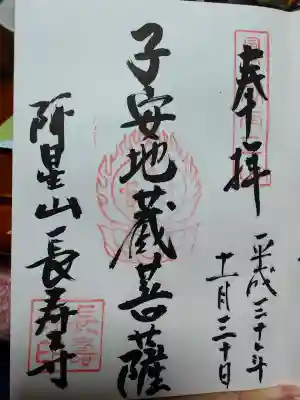 奉拝
平成三十年
十一月三十日
子安地蔵菩薩
阿星山長寿寺